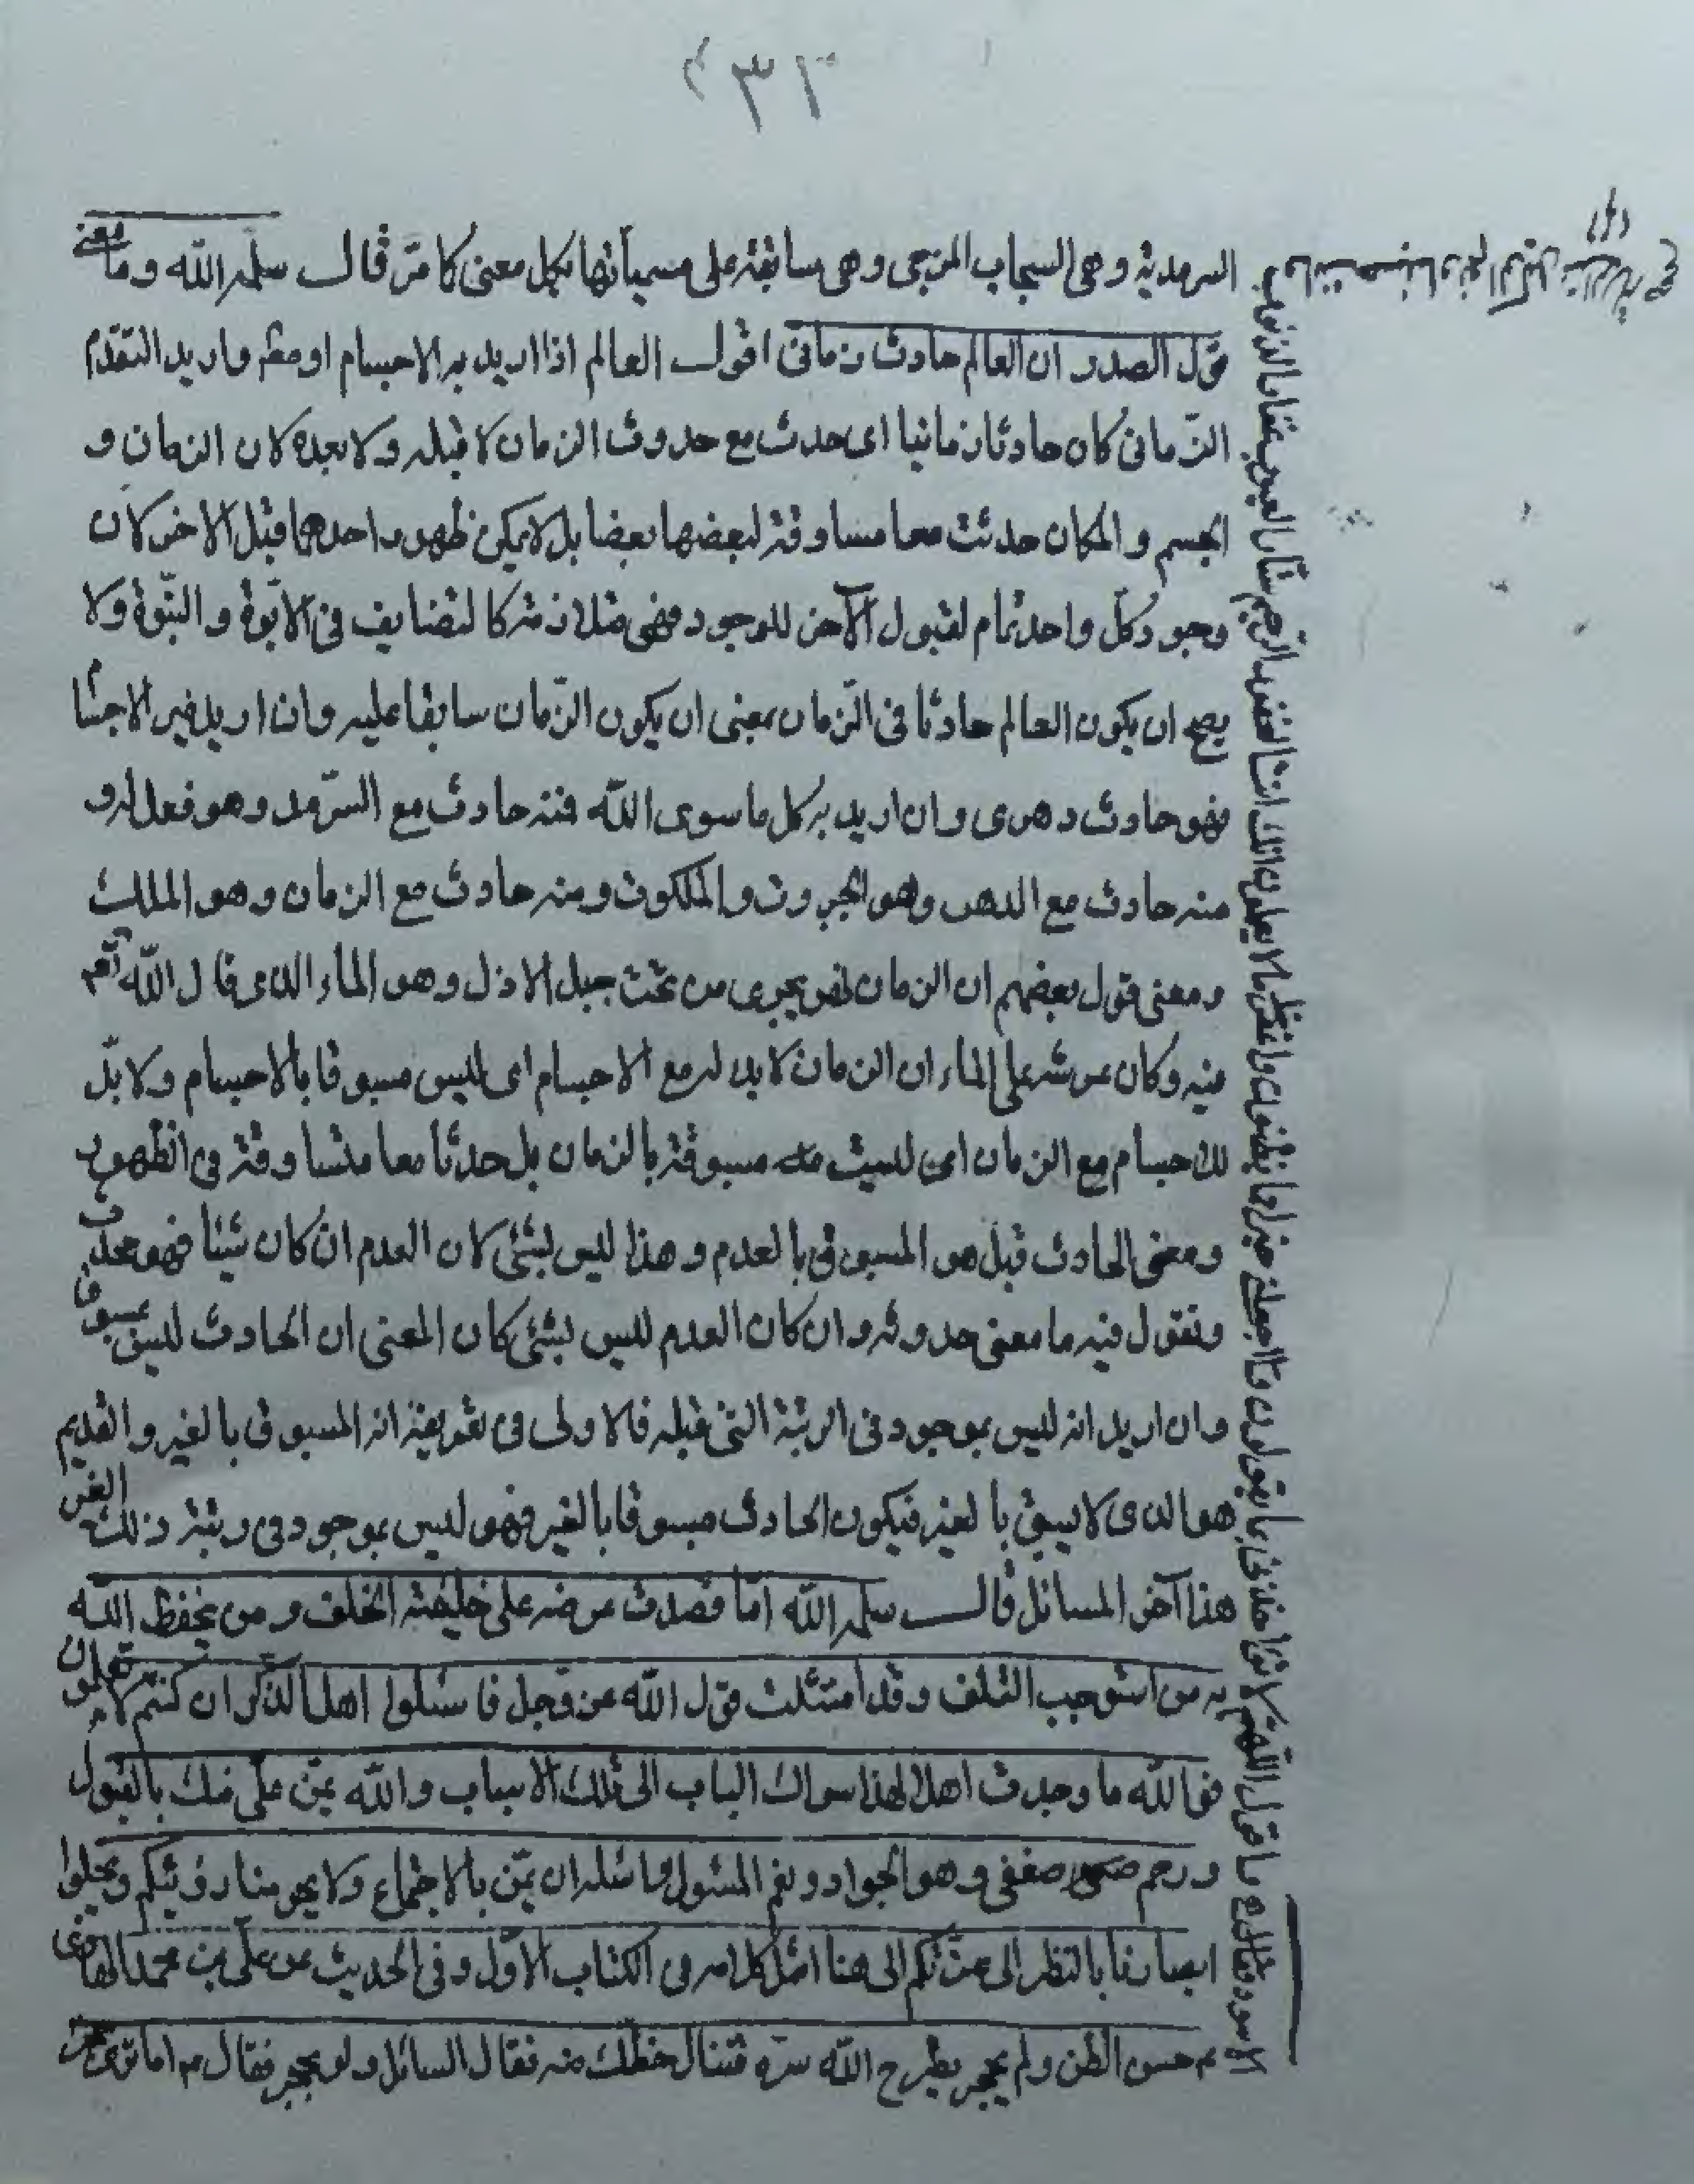 ٣١
السرمدية وهى السحاب المزجى وهى سابقة على مسمياتها بكل معنى كما مرّ قال سلمه الله وما معنى
قول الصدر ان العالم حادث زمانى اقول العالم اذا اريد به الاجسام او مطم واريد التقدم
الزمانى كان حادثا زمانيا اى حدث مع حدوث الزمان لا قبله ولا بعده لان الزمان و
الجسم والمكان حدثت معا مساوقة لبعضها بعضا بل لا يمكن ظهور احدهما قبل الاخر لان
وجود كل واحد تمام لقبول الآخر للوجود فهى متلازمة كالتضايف فى الابوة والبنوة ولا
يصح ان يكون العالم حادثا فى الزمان بمعنى ان يكون الزمان سابقا عليه وان اريد غير الاجسام
فهو حادث دهرى وان اريد به كل ما سوى الله فمنه حادث مع السرمد وهو فعله و
منه حادث مع الدهر وهو الجبروت والملكوت ومنه حادث مع الزمان وهو الملك
ومعنى قول بعضهم ان الزمان نهر يجرى من تحت جبل الازل وهو الماء الذى قال الله تعم
فيه وكان عرشه على الماء ان الزمان لا بد له مع الاجسام اى ليس مسبوقا بالاجسام ولا بدّ
للاجسام مع الزمان اى ليست مسبوقة بالزمان بل حدثا معا متساوقة فى الظهور
ومعنى الحادث قبل هو المسبوق بالعدم وهذا ليس بشئ لان العدم ان كان شيئا فهو محدث
ونقول فيه ما معنى حدوثه وان كان العدم ليس بشئ كان المعنى ان الحادث ليس بمسبوق
وان اريد انه ليس بموجود فى الرتبة التى قبله فالاولى فى تعريفه انه المسبوق بالغير والقديم
هو الذى لا يسبق بالغير فيكون الحادث مسبوقا بالغير فهو ليس بموجود فى رتبة ذلك الغير
هذا آخر المسائل قال سلمه الله امّا قصدت عرضه على خليفة الخلف ومن يحفظ الله
به من استوجب التلف وقد امتثلت قول الله عز وجل فاسئلوا اهل الذكر ان كنتم لا تعلمون
فو الله ما وجدت اهلا لهذا سواك الباب الى تلك الاسباب والله يمنّ علىّ منك بالقبول
ورحم ضعفى وهو الجواد ونعم المسئول واسئله ان يمنّ بالاجتماع ولا يحرمنا رؤيتكم ويجلوا
ابصارنا بالنظر الى عزتكم الى هنا كلامه فى الكتاب الاوّل وفى الحديث عن على بن محمد الهادى
م حسن الظن ولم بحجر يطرح الله سرّه فتنال حظك منه فقال السائل ولو بحجر فقال م اما ترى
الاسود وقال ع ما قول اللهم لا تؤاخذنى بما يقولون واجعلنى خيرا مما يظنون واغفر لى ما لا يعلمون انك انت الغفور الرحيم ستار العيوب غفار الذنوب